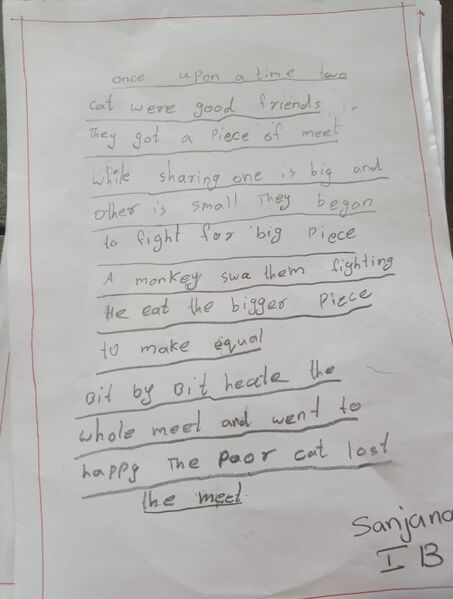 once upon a time two
cat were good friends
They got a piece of meet
while sharing one is big and
other is small They began
to fight for big piece
A monkey swa them fighting
He eat the bigger piece
to make equal
Bit by Bit heate the
whole meet and went to
happy The poor cat lost
the meet
Sanjana
I B